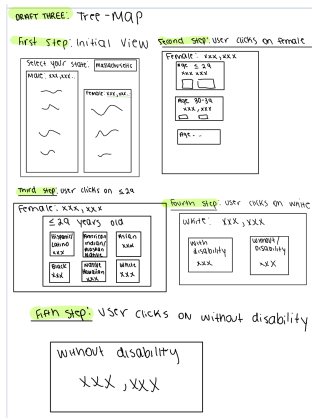 DRAFT THREE: Tree-MAP
First Step: Initial View
Select your state: Massachusetts
Male: xxx,xxx..
Female: xxx,xxx..
Second step: user clicks on female
Female: xxx,xxx
Age ≤ 29
xxx xxx
Age 30-39
xxx,xxx
Age...
Third step: user clicks on ≤29
Female: xxx,xxx
≤ 29 years old
Hispanic/
Latino
xxx
American
Indian/
Alaskan
Native
Asian
xxx
Black
xxx
Native
Hawaiian
xxx
White
xxx
Fourth step: user clicks on white
White: xxx,xxx
With
disability
xxx
Without/
disability
xxx
Fifth step: user clicks on without disability
without disability
xxx,xxx